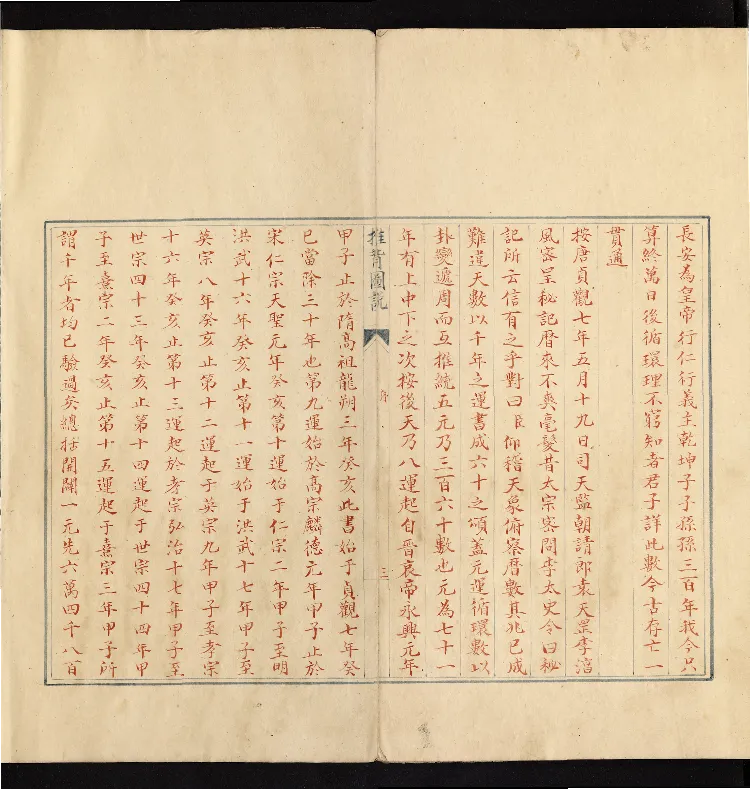 長安為皇帝行仁行義主乾坤子子孫孫三百年我今只
算終萬日後循環理不窮知者君子詳此數今古存亡一
貫通
按唐貞觀七年五月十九日司天監朝請郎袁天罡李淳
風密呈秘記曆來不爽毫髮昔太宗密問李太史令曰秘
記所云信有之乎對曰臣仰稽天象俯察曆數其兆已成
難違天數以千年之運書成六十之頌蓋元運循環數以
卦變遞周而互推統五元乃三百六十數也元為七十一
年有上中下之次按後天乃八運起自晉哀帝永興元年
推背圖說
序
三
甲子止於隋高祖龍朔三年癸亥此書始于貞觀七年癸
巳當除三十年也第九運始於高宗麟德元年甲子止於
宋仁宗天聖元年癸亥第十運始于仁宗二年甲子至明
洪武十六年癸亥止第十一運始于洪武十七年甲子至
英宗八年癸亥止第十二運起于英宗九年甲子至孝宗
十六年癸亥止第十三運起於孝宗弘治十七年甲子至
世宗四十三年癸亥止第十四運起于世宗四十四年甲
子至熹宗二年癸亥止第十五運起于熹宗三年甲子所
謂千年者均已驗過矣總括開闢一元先六萬四千八百